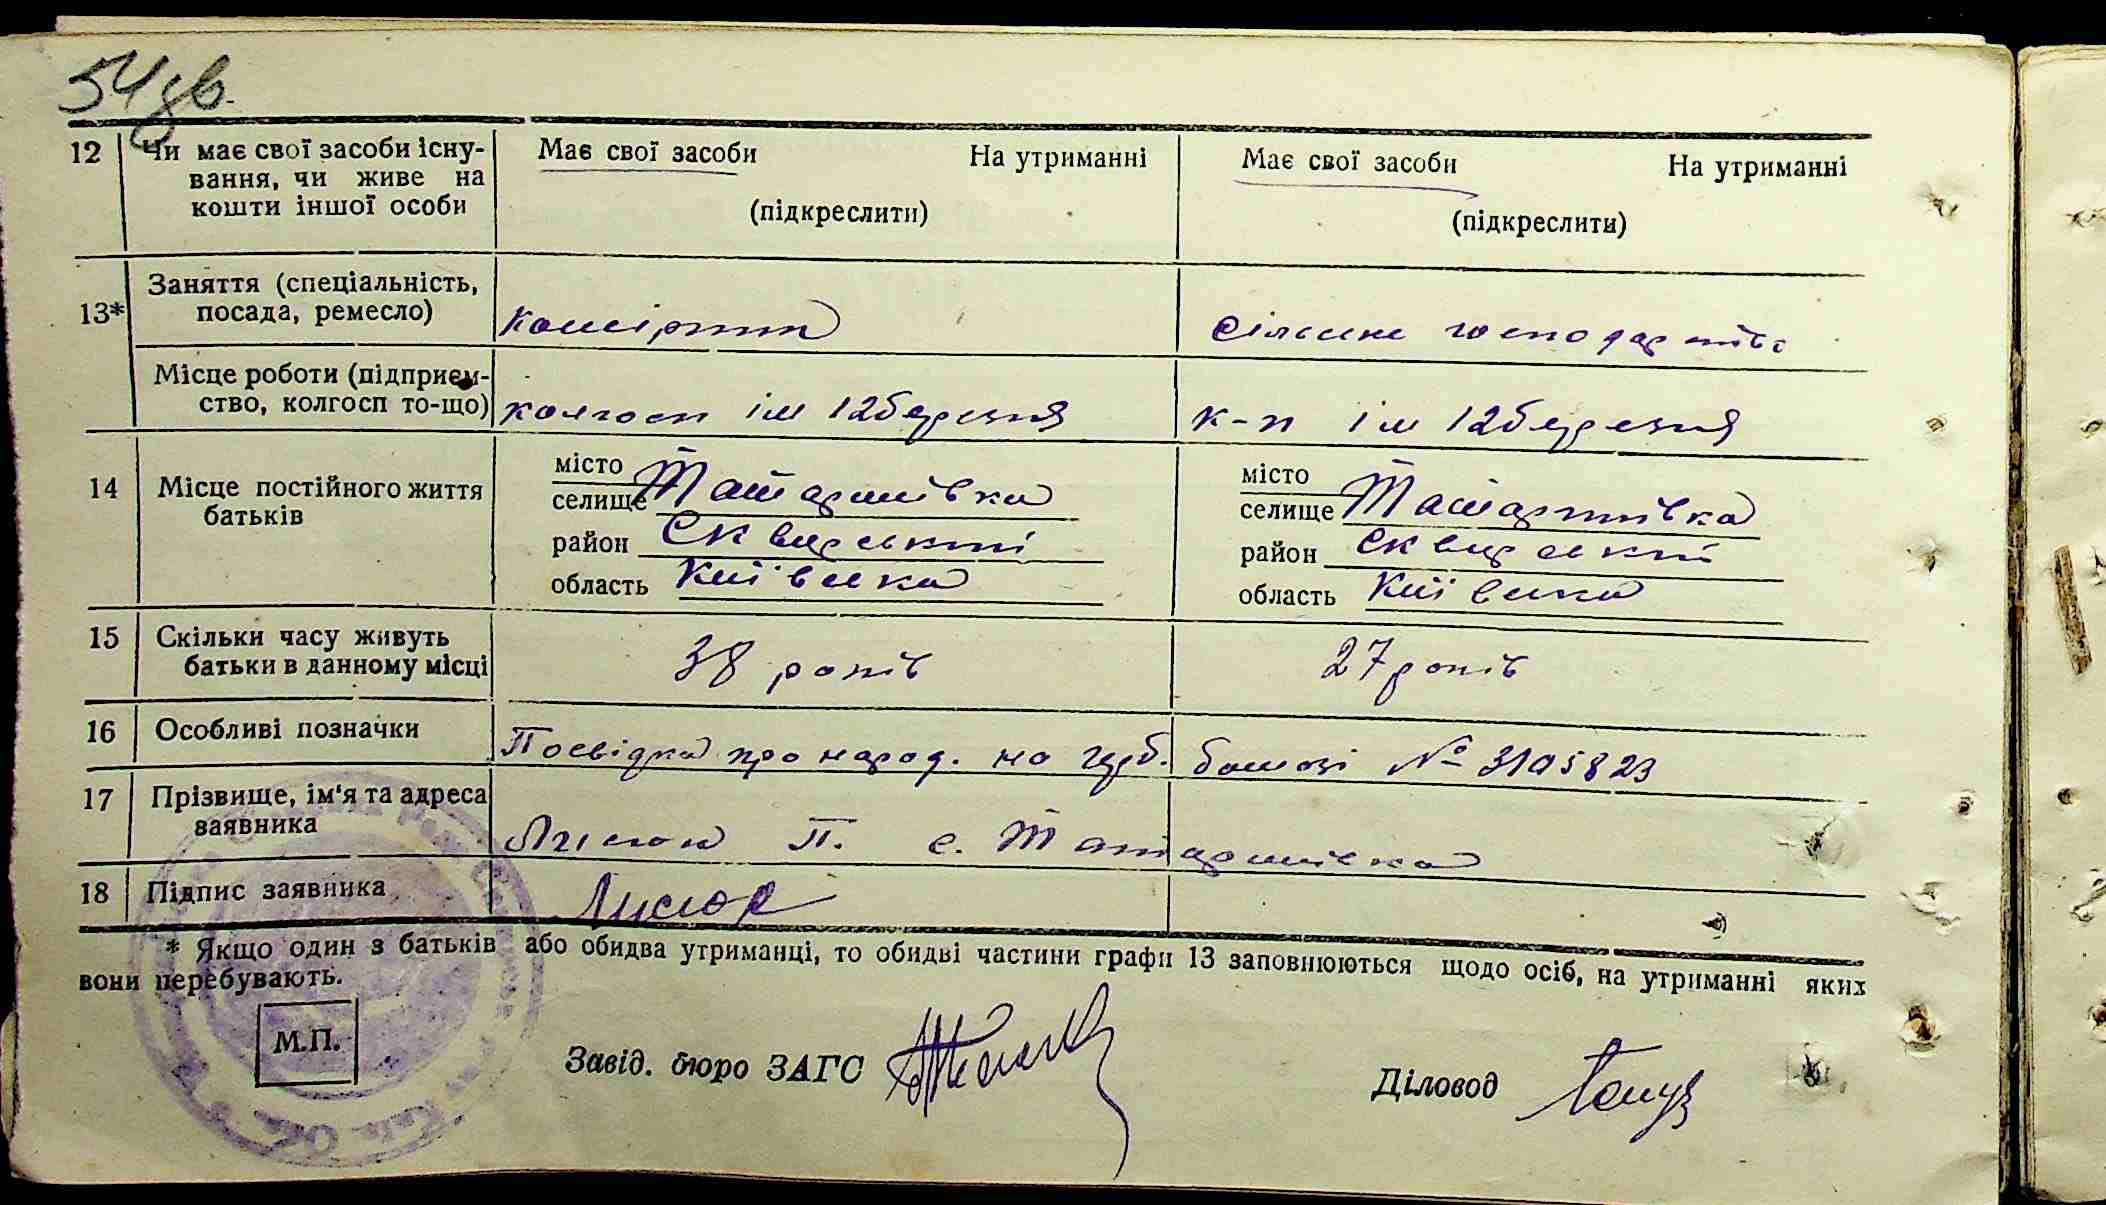 54зв.
12 Чи має свої засоби існу- Має свої засоби На утриманні Має свої засоби На утриманні
вання, чи живе на
кошти іншої особи (підкреслити) (підкреслити)
Заняття (спеціальність,
13* посада, ремесло) сільське господарство
Місце роботи (підприєм-
ство, колгосп то-що) колгосп ім 12 березня к-п ім 12 березня
14 Місце постійного життя місто місто
батьків селище Татаринівка селище Татаринівка
район Сквирський район Сквирський
область Київська область Київська
15 Скільки часу живуть
батьки в данному місці 38 років 27 років
16 Особливі позначки Посвідка про народ. на гурб. № 3105823
17 Прізвище, ім'я та адреса
заявника Лисюк П. с. Татаринівка
18 Підпис заявника Лисюк
* Якщо один з батьків або обидва утриманці, то обидві частини графи 13 заповнюються щодо осіб, на утриманні яких
вони перебувають.
М.П. Завід. бюро ЗАГС Діловод